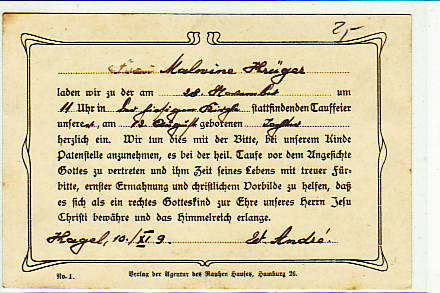 2,-
Frau Malwine Krüger
laden wir zu der am 28. November um
11 Uhr in der hiesigen Kirche stattfindenden Tauffeier
unserer, am 12. August geborenen Tochter
herzlich ein. Wir tun dies mit der Bitte, bei unserem Kinde
Patenstelle anzunehmen, es bei der heil. Taufe vor dem Angesichte
Gottes zu vertreten und ihm Zeit seines Lebens mit treuer Für-
bitte, ernster Ermahnung und christlichem Vorbilde zu helfen, daß
es sich als ein rechtes Gotteskind zur Ehre unseres Herrn Jesu
Christi bewähre und das Himmelreich erlange.
Hagel, 10./XI 9. W. André.
No. 1. Verlag der Agentur des Rauhen Hauses, Hamburg 26.